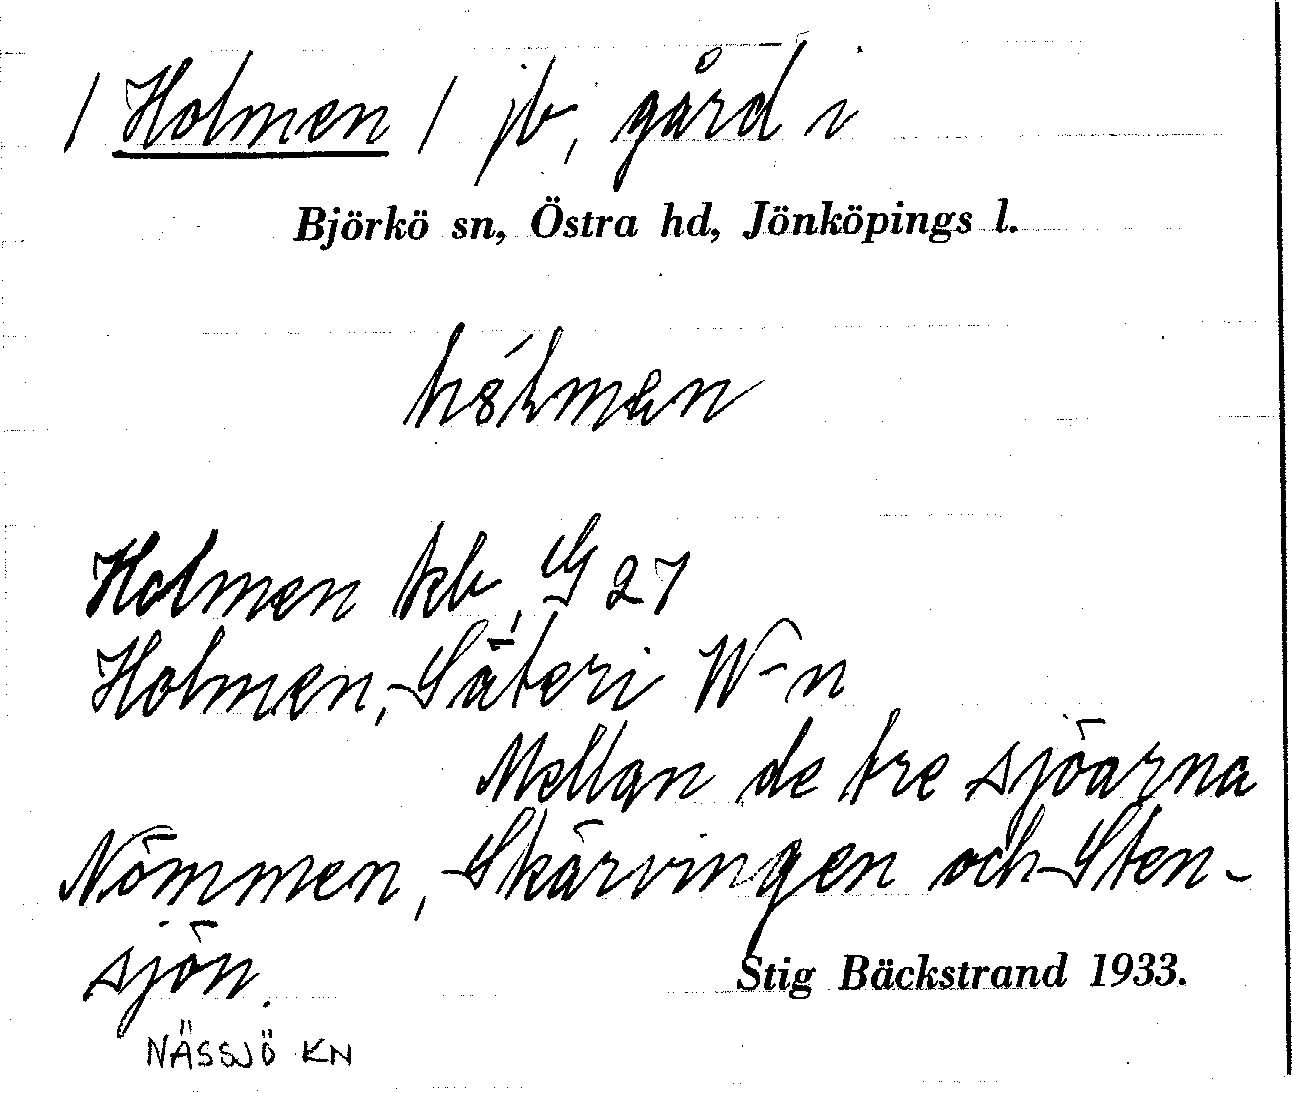 / Holmen / jb, gård i
Björkö sn, Östra hd, Jönköpings l.
Holmen kb, G 27
Holmen, Säteri W-n
Mellan de tre sjöarna
Nömmen, Skärvingen och Sten-
sjön.
Stig Bäckstrand 1933.
NÄSSJÖ KN